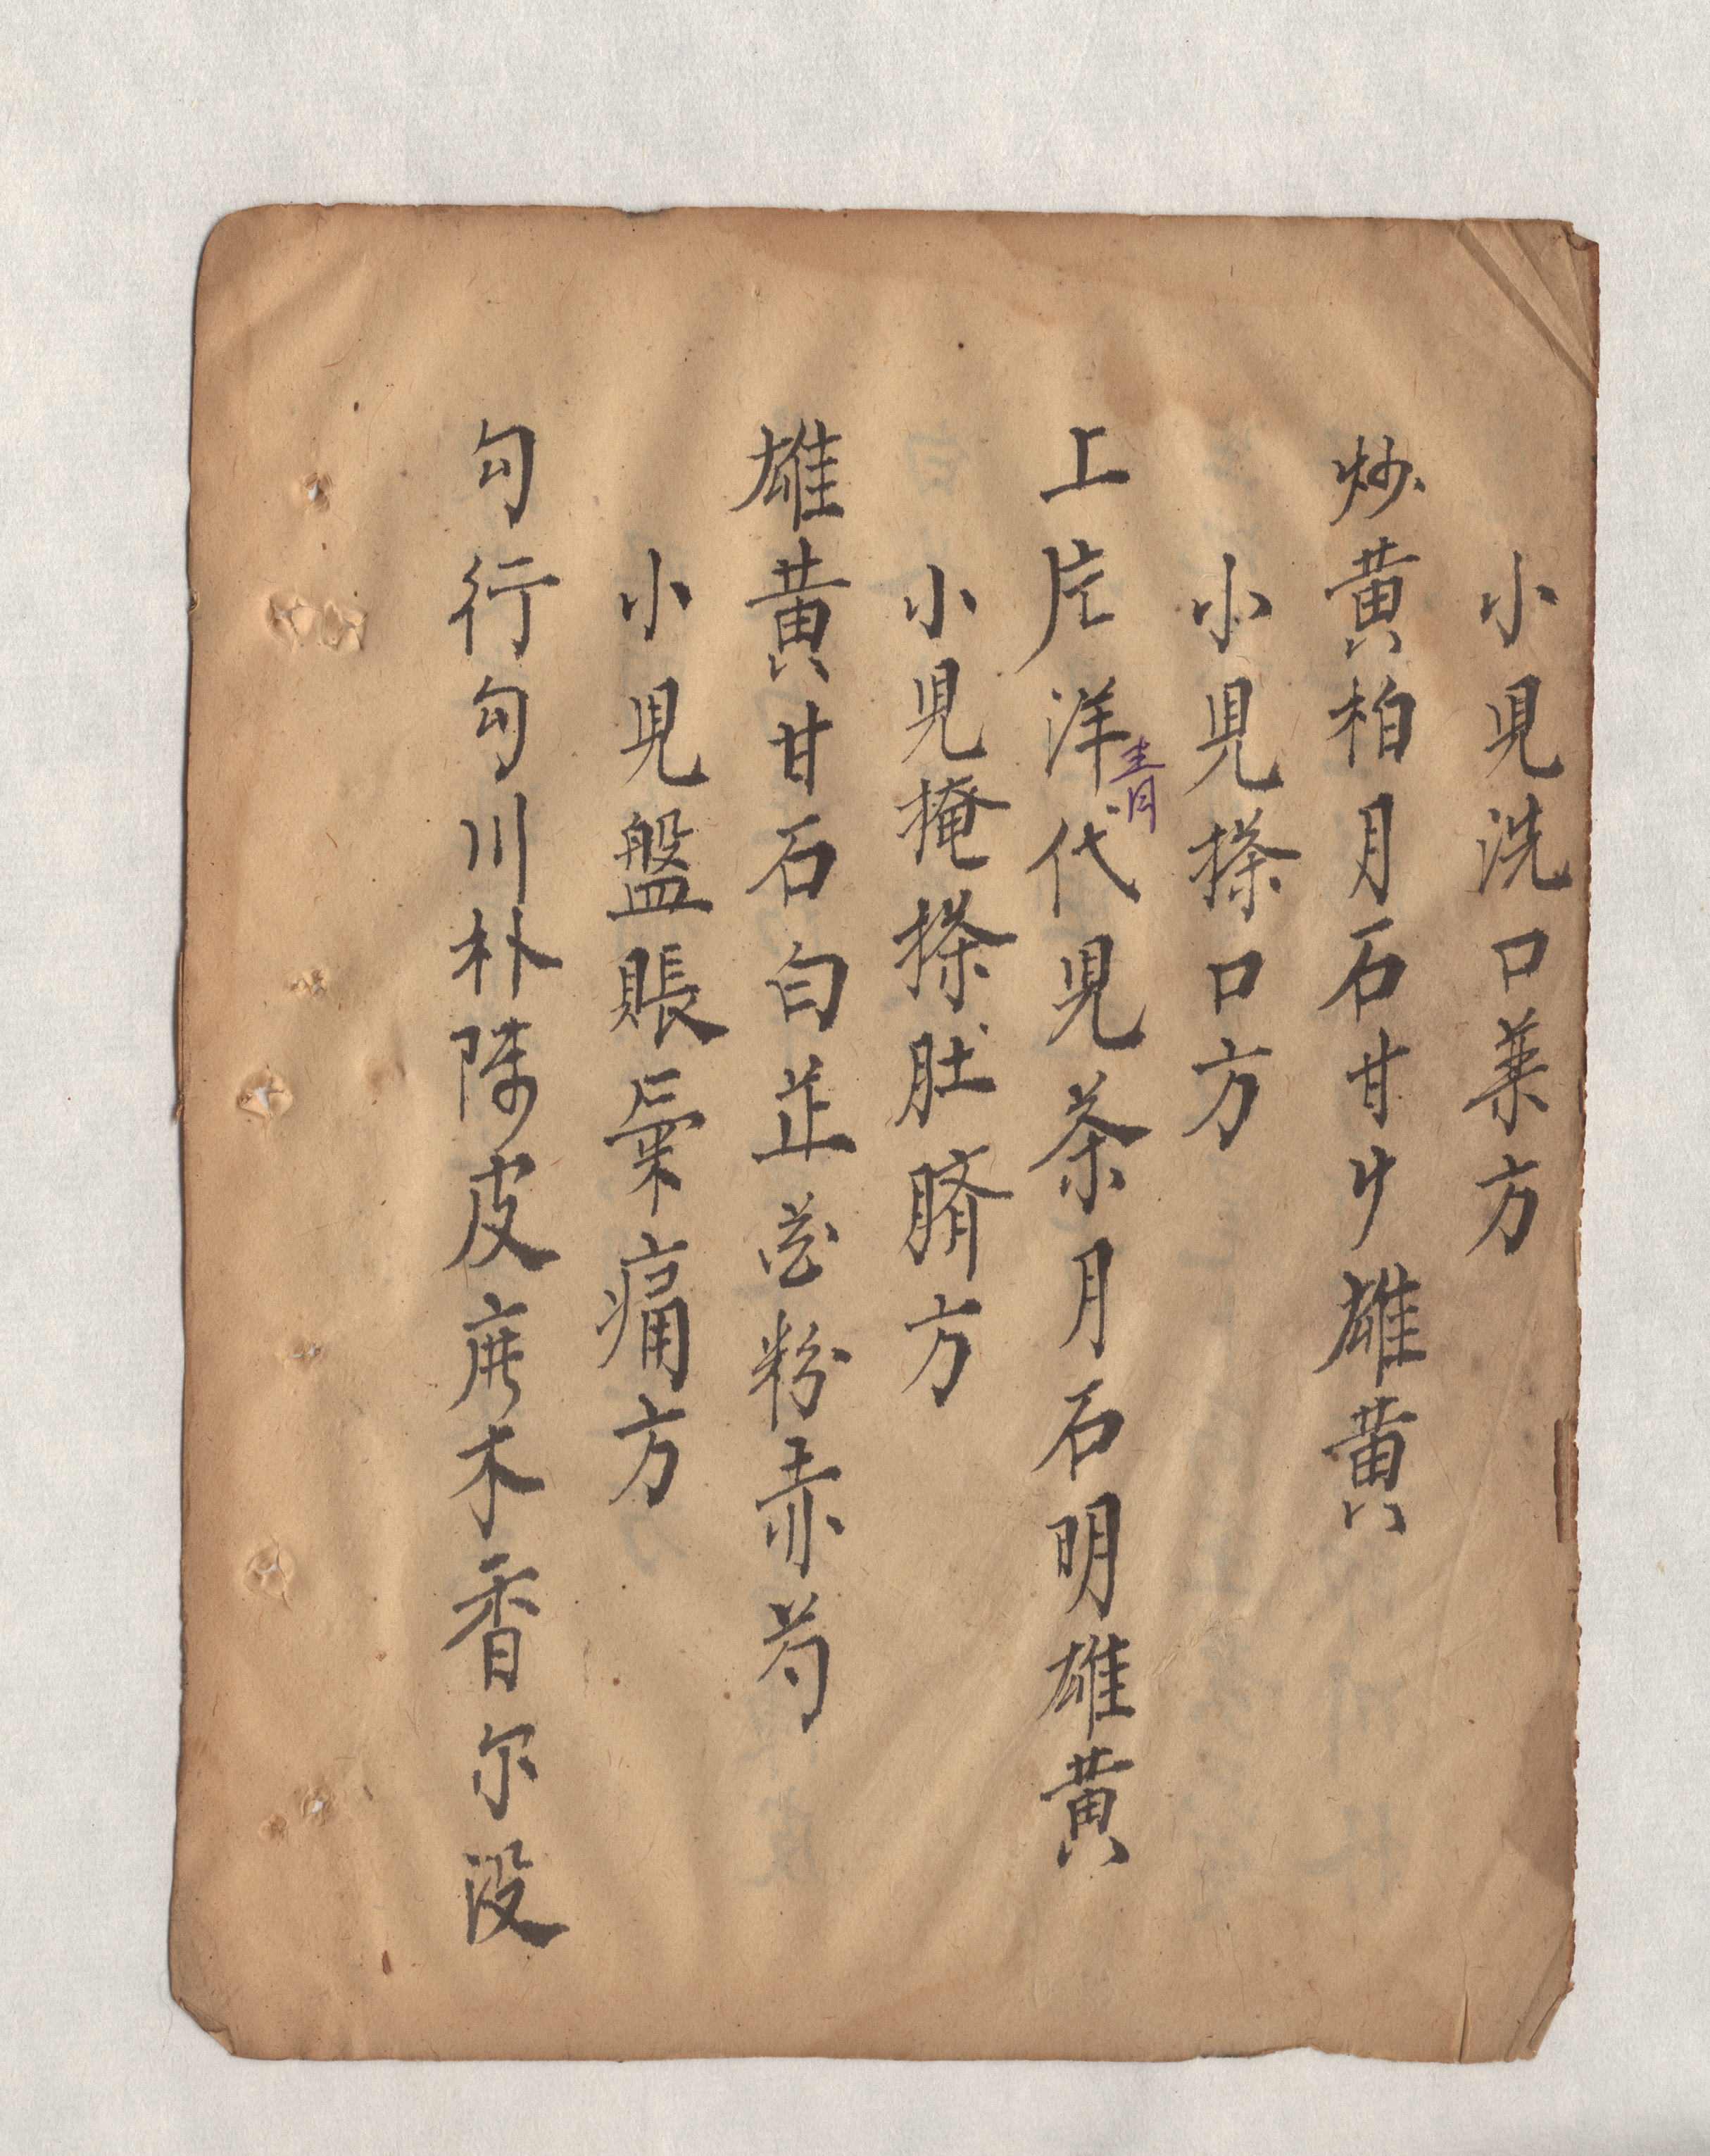 小兒洗口薬方
炒黄柏月石甘少雄黄
小兒搽口方
上片洋代兒茶月石明雄黄
青
小兒掩搽肚臍方
雄黄甘石白芷花粉赤芍
小兒盤賬氣痛方
勾行勾川朴陳皮廣木香尔没